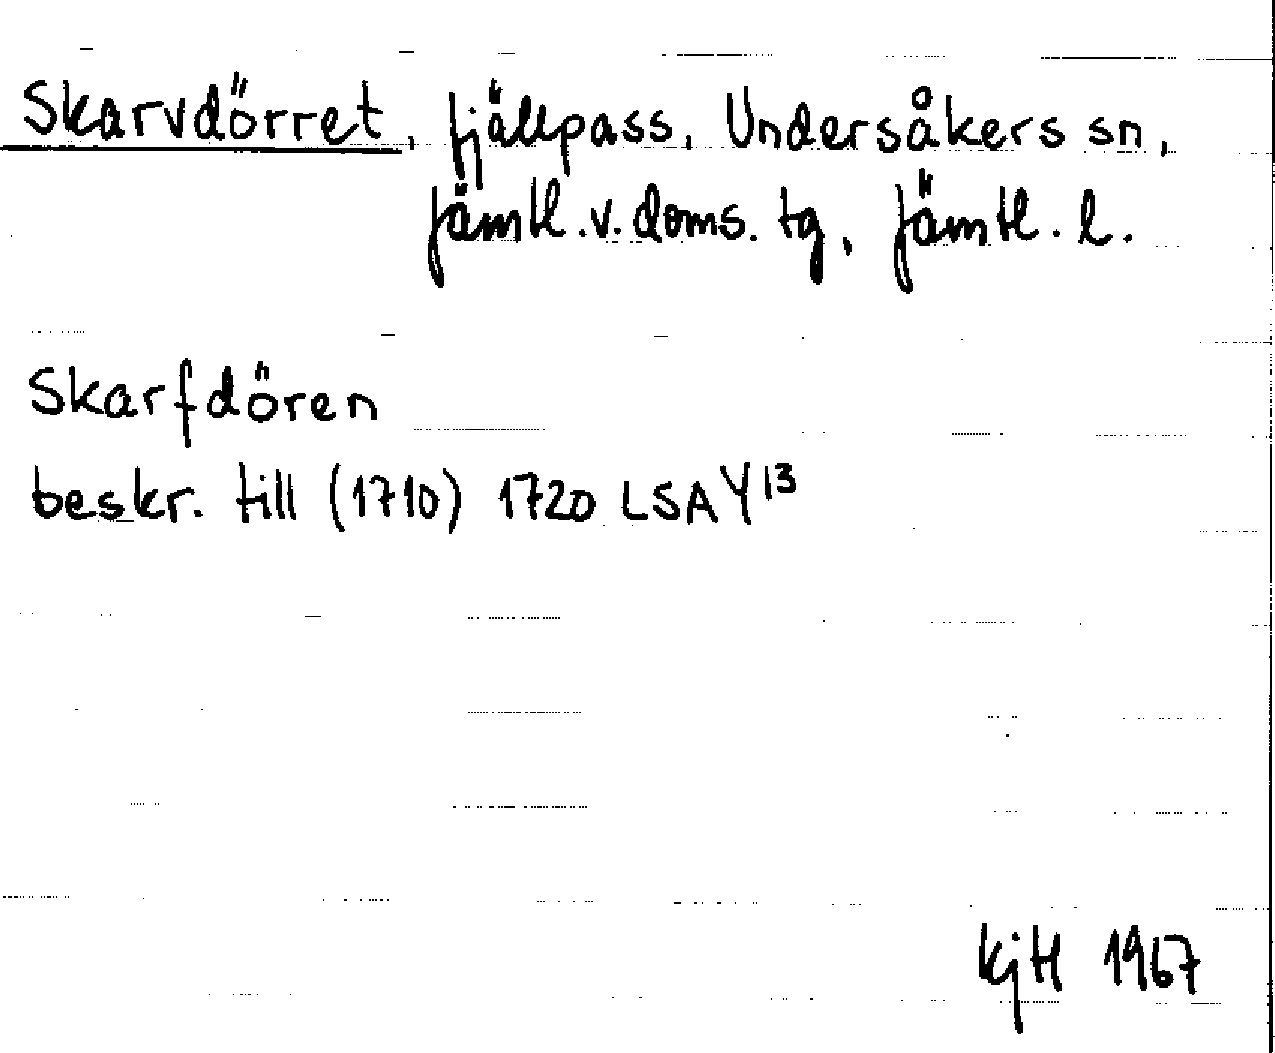 Skarvdörret, fjällpass, Undersåkers sn,
Jämtl. v. doms. tg, Jämtl. l.
Skarfdören
beskr. till (1710) 1720 LSA Y¹³
KjH 1967